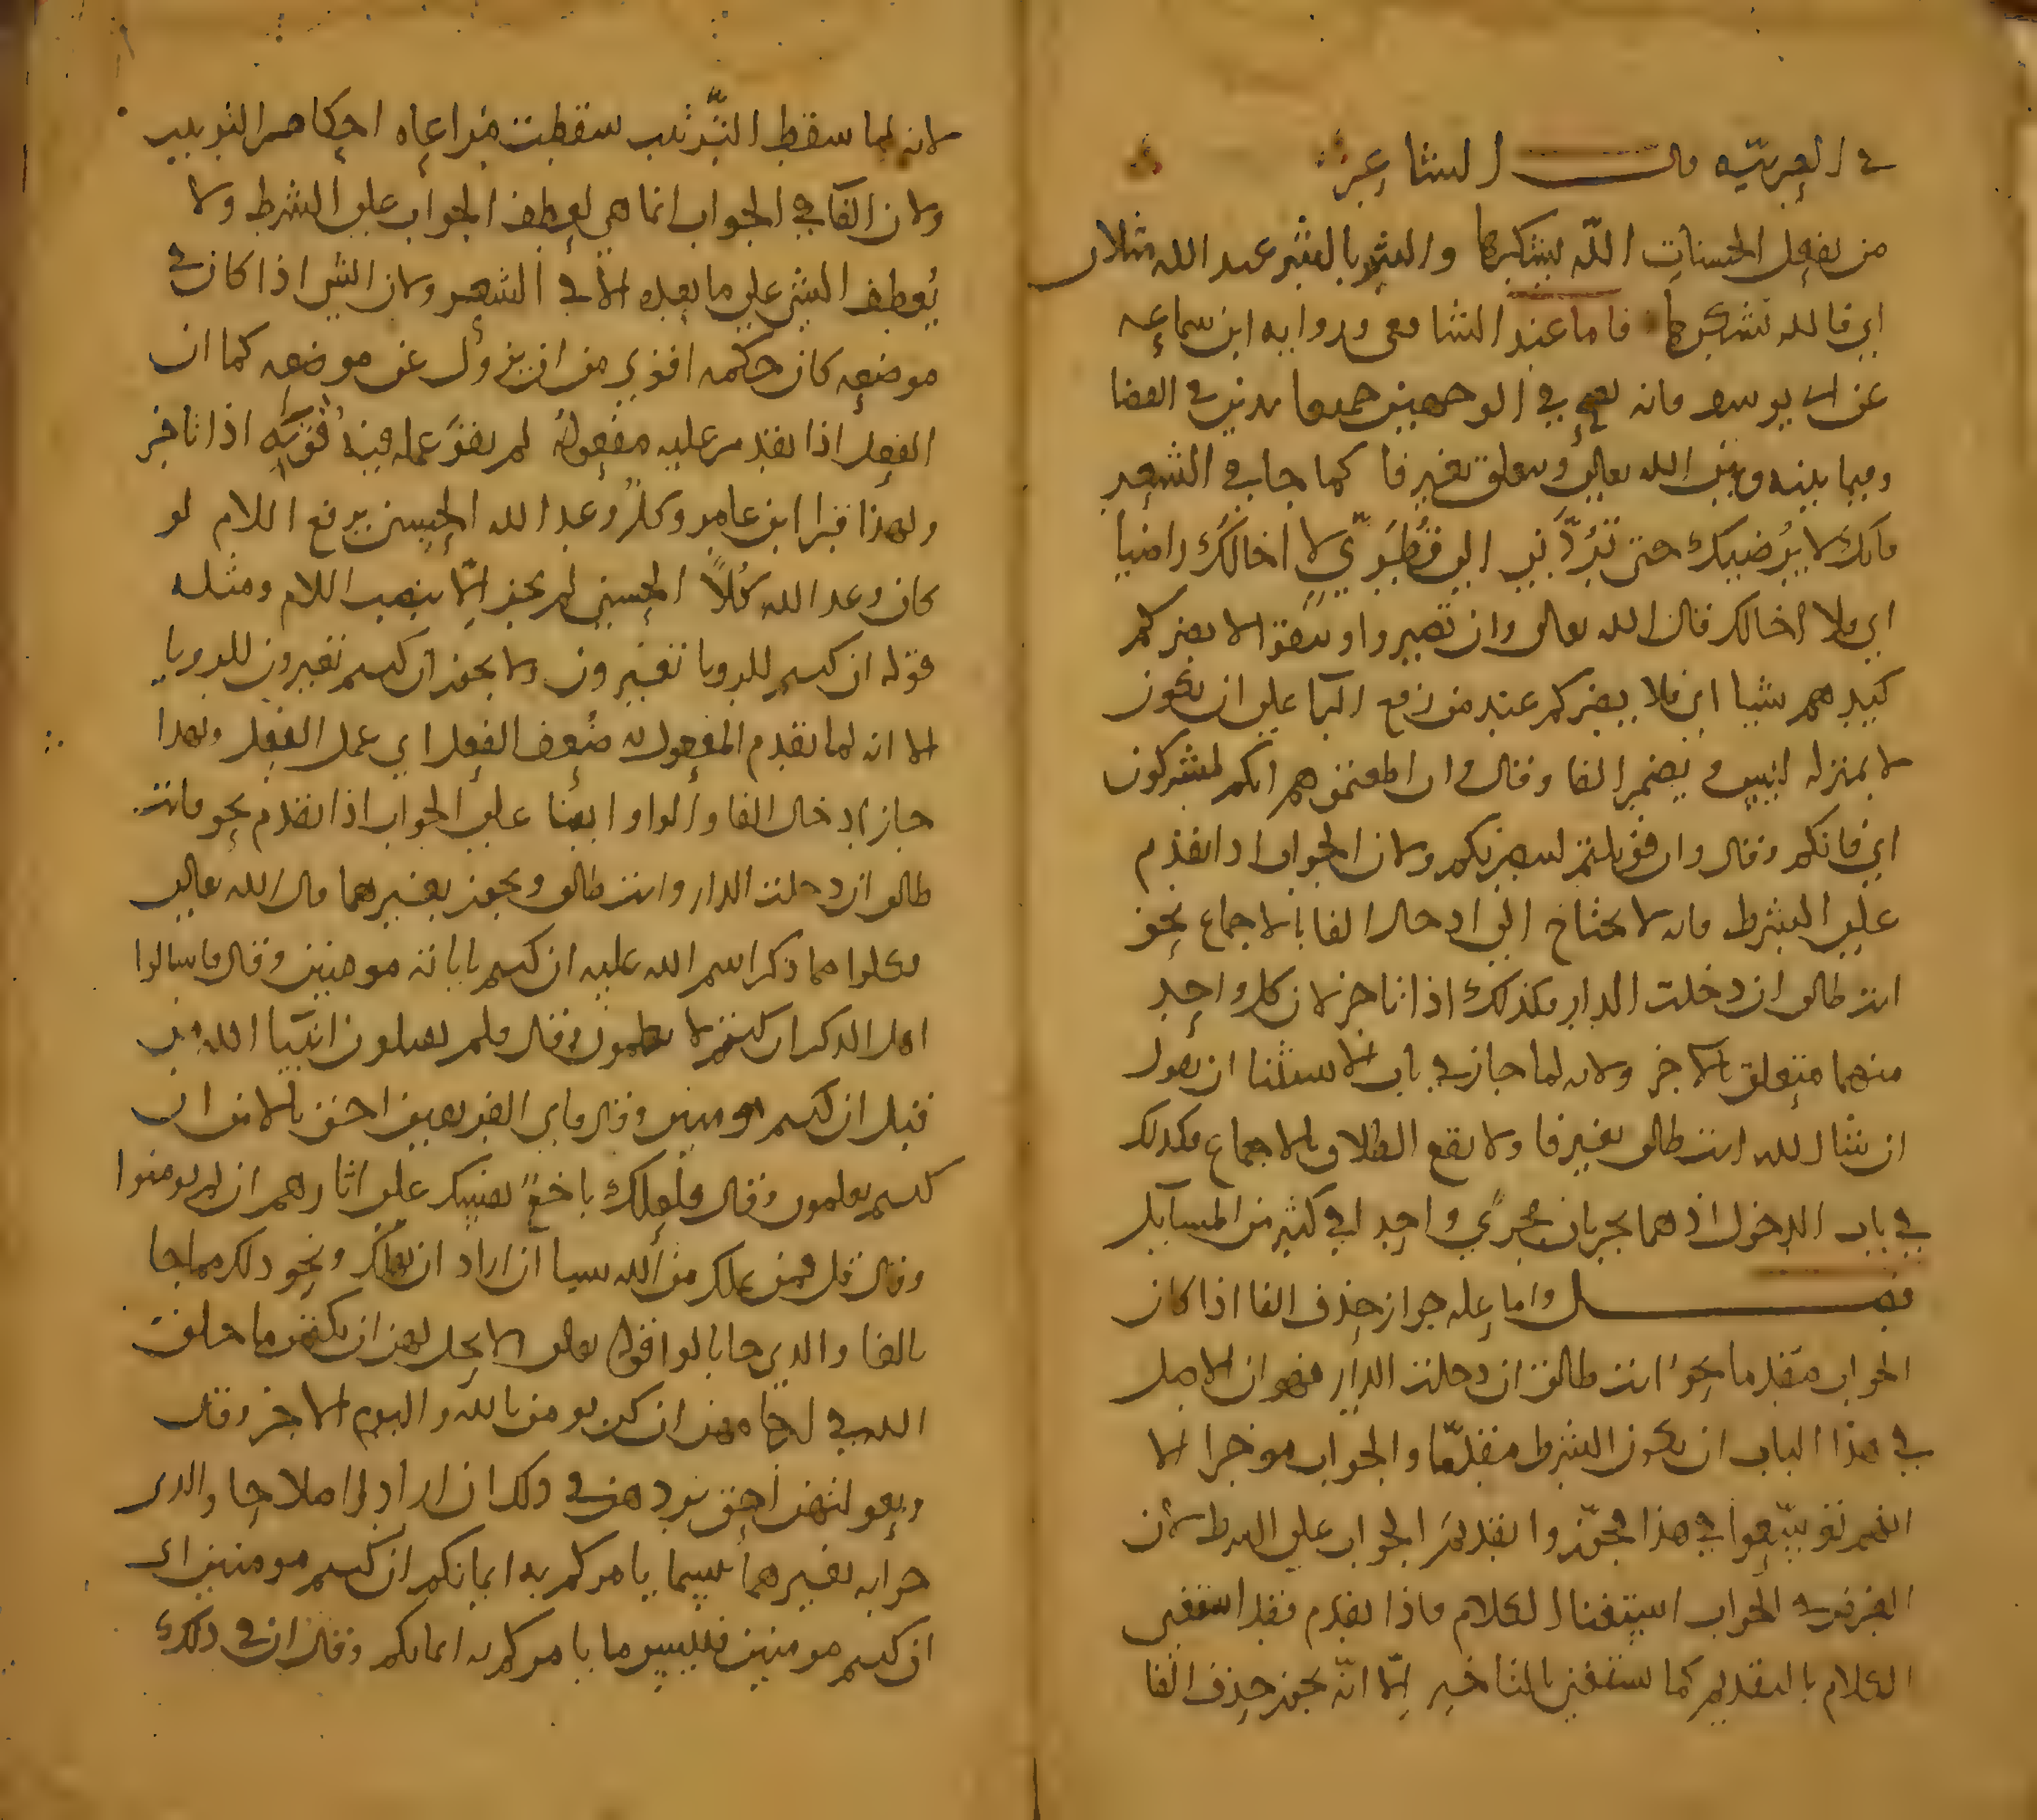 في العربيّه قال الشاعر
من يفعل الحسناتِ اللّه يشكرها والشر بالشر عند الله مثلان
اي فالله يشكرها فاما عند الشافعي ورواية ابن سماعه
عن ابي يوسف فانه يقع في الوجهين جميعا يدين في القضا
وفيما بينه وبين الله تعالى ويتعلق بغير فا كما جا في الشعر
فانك لا يُرضيك حتى تَرُدَّني الى قُطُريّ لا اخالك راضيا
اي فلا اخالك قال الله تعالى وان تصبروا وتتقوا لا يضركم
كيدهم شيا اي فلا يضركم عند من رفع الرا على ان يكون
لا بمنزلة ليس ويضمر الفا وقال وان اطعتموهم انكم لمشركون
اي فانكم وقال وان قوتلتم لننصرنكم ولان الجواب اذا تقدم
على الشرط فانه لا يحتاج الى ادخال الفا بالاجماع نحو
انت طالق ان دخلت الدار فكذلك اذا تاخر لان كل واحد
منهما متعلق بالاخر ولانه لما جاز في باب الاستثنا ان يقول
ان شا الله انت طالق بغير فا ولا يقع الطلاق بالاجماع فكذلك
في باب الدخول اذ هما يجريان مجرًي واحد افي كثير من المسايل
فصل واما علة جواز حذف الفا اذا كان
الجواب متقدما نحو انت طالق ان دخلت الدار فهو ان الاصل
في هذا الباب ان يكون الشرط متقدّما والجواب موخرا الا
انهم توسّعوا في هذا فجوّزوا تقديم الجواب على الشرط لان
الغرض في الجواب استغنا الكلام فاذا تقدم فقد استغنى
الكلام بالتقديم كما يستغني بالتاخير اِلّا انّه يجوز حذف الفا
لانه لما سقط التّرتيب سقطت مراعاه احكام الترتيب
ولان الفا في الجواب انما هي لعطف الجواب على الشرط ولا
يُعطف الشي على ما بعده الا في الشعر ولان الشي اذا كان في
موضعه كان حكمه اقوي من ان يزول عن موضعه كما ان
الفعل اذا تقدم عليه مفعوله لم يقوَ عمله فيه قوته اذا تاخر
ولهذا قرا ابن عامر وكلٌ وعد الله الحسنى برفع اللام لو
كان وعد الله كُلاً الحسنى لم يجز اِلّا بنصب اللام ومثله
قوله ان كنتم للرويا تعبرون ولا يجوز ان كنتم تعبرون للرويا
الا انه لما تقدم المفعول به ضُعف الفعل اي عمل الفعل ولهذا
جاز ادخال الفا والواو ايضا على الجواب اذا تقدم نحو فانت
طالق ان دخلت الدار وانت طالق ويجوز بغيرهما قال الله تعالى
فكلوا مما ذكر اسم الله عليه ان كنتم باياته مومنين وقال فاسالوا
اهل الذكر ان كنتم لا تعلمون وقال فلم تقتلون انبيا الله من
قبل ان كنتم مومنين وقال فاي الفريقين احق بالامن ان
كنتم تعلمون وقال فلعلك باخعٌ نفسك على اثارهم ان لم يومنوا
وقال قل فمن يملك من الله شيا ان اراد ان يهلك ونحو ذلك مما جا
بالفا والذي جا بالواو قوله تعالى ولا يحل لهن ان يكتمن ما خلق
الله في ارحامهن ان كن يومن بالله واليوم الاخر وقال
وبعولتهن احق بردهن في ذلك ان ارادوا اصلاحا والذي
جوابه بغيرهما بيسما يامركم به ايمانكم ان كنتم مومنين اي
ان كنتم مومنين فلبيس ما يامركم به ايمانكم وقال ان في ذلك